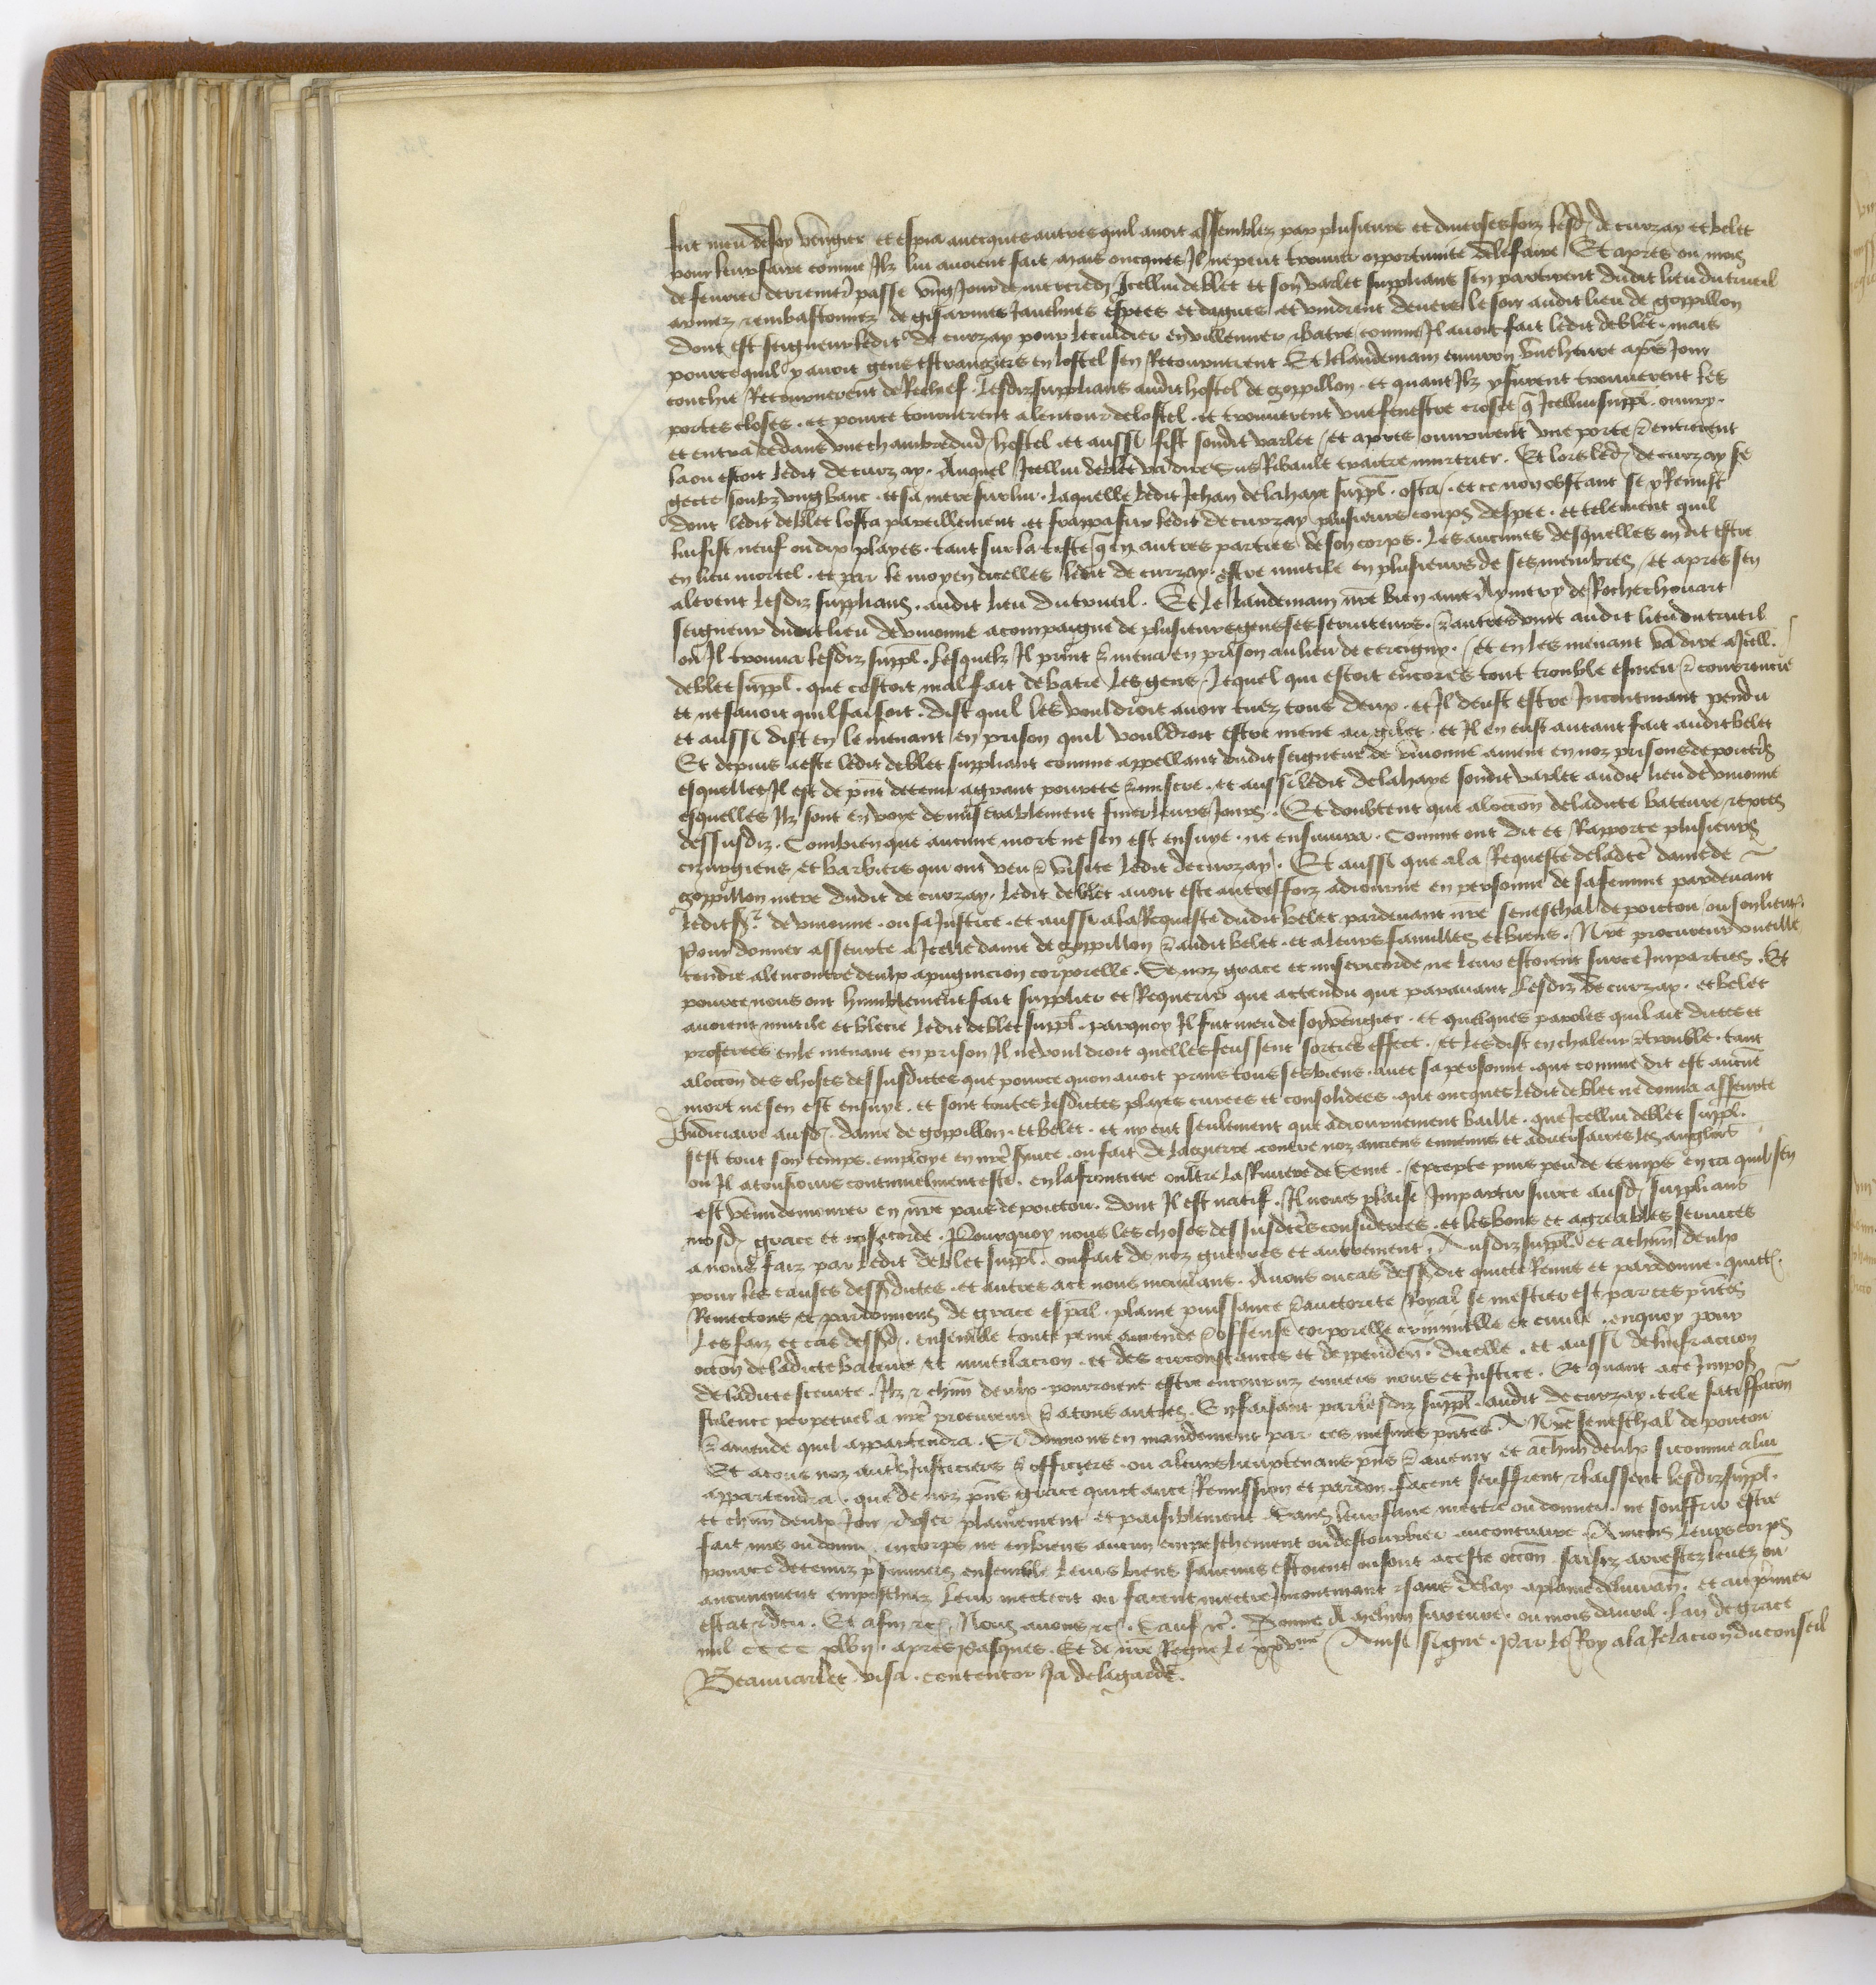 fut meu de soy vengier et espia avecques autres quil avoit assemblez par plusieurs et diverses foiz lesd. de curzay et belet
pour leur faire comme Ilz lui avoient fait mais oncques Il ne peut trouver oportunite de le faire Et apres ou mois
de fevrier derrenier passe ung jour de mercredi Icellui deblet et son varlet supplians sen partirent dudit lieu du trueil
armez embastonnez de gisarmes Javelines espees et dagues et vindrent devers le soir audit lieu de goppillon
dont est seigneur ledit de curzay pour le cuidier envillenner batre comme Il avoit fait ledit deblet mais
pource quil y avoit gens estrangiers en lostel sen Retournerent Et le landemain environ une heure apres Jour
couchie Retournerent de Rechief lesdiz supplians audit hostel de goppillon et quant Ilz y furent trouverent les
portes closes et pource tournerent alentour de lostel et trouverent une fenestre crosee q Icellui suppl. ouvry
et entra dedans une chambre dud. hostel et aussi fist sondit varlet et apres ouvrirent une porte & entrerent
la ou estoit ledit de curzay Auquel Icellui deblet va dire Sus Ribault traitre murtrier Et lors led. de curzay se
gecte soubz ung banc et sa mere sur lui laquelle ledit Jehan delahaye suppl. osta et ce non obstant se y Remist
dont ledit deblet losta pareillement et frappa sur ledit de curzay plusieurs coups despee et telement quil
lui fist neuf ou dix playes tant sur la teste q en autres parties de son corps les aucunes desquelles on dit estre
en lieu mortel et par le moyen dicelles ledit de curzay estre mutile en plusieurs de ses membres et apres sen
alerent lesdiz supplians audit lieu du trueil Et le landemain nre bien ame Aymery de Rochechouart
seigneur dudit lieu de vivonne acompaigne de plusieurs gens ses serviteurs & autres vint audit lieu du trueil
ou Il trouva lesdiz suppl. lesquelz Il print & mena en prison au lieu de cercigny et en les menant va dire a Icell.
deblet suppl. que cestoit mal fait de batre les gens lequel qui estoit encores tout trouble esmeu & courroucie
et ne savoit quil faisoit dist quil les vouldroit avoir tuez tous deux et Il deust estre Incontinant pendu
et aussi dist en le menant en prison quil vouldroit estre mene au gibet et Il en eust autant fait audit belet
Et depuis a este ledit deblet suppliant comme appellant dudit seigneur de vivonne amene en noz prisons de poictiers
esquelles Il est de pnt detenu a grant povrete & misere et aussi ledit delahaye sondit varlet audit lieu de vivonne
esquelles Ilz sont en voye de miserablement finer leurs Jours Et doubtent que a loccon de ladicte bateure exces
dessusdiz Combien que aucune mort ne sen est ensuye ne ensuivra Comme ont dit et Rapporte plusieurs
cirurgiens et barbiers qui ont veu & visite ledit de curzay Et aussi que a la Requeste de ladte dame de
goppillon mere dudit de curzay ledit deblet avoit este autresfoiz adiourne en personne de sa femme pardevant
ledit sr de vivonne ou sa Justice et aussi a la Requeste dudit belet pardevant nre seneschal de poictou ou son lieuten.
pour donner asseurte a Icelle dame de goppillon & audit belet et a leurs familles et biens Nre procureur vueille
tendre alencontre deulx a pugnicion corporelle Se noz grace et misericorde ne leur estoient sur ce Imparties Et
pource nous ont humblement fait supplier et Requerir que actendu que paravant lesdiz de curzay et belet
avoient mutile et blecie ledit deblet suppl. parquoy Il fut meu de soy vengier et quelques paroles quil ait dictes et
proferees en le menant en prison Il ne vouldroit quelles feussent sorties effect et les dist en chaleur & trouble tant
a loccon des choses dessusdictes que pource quon avoit prins tous ses biens avec sa personne que comme dit est aucune
mort ne sen est ensuye et sont toutes lesdictes playes curees et consolidees que oncques ledit deblet ne donna asseurte
Judiciaire ausd. dame de goppillon et belet et ny eut seulement que adiournement baille que Icellui deblet suppl.
sest tout son temps employe en nre service ou fait de la guerre contre noz anciens ennemis et adversaires les anglois
ou Il a tousiours continuelment este en la frontiere oultre la Riviere de Seine excepte puis peu de temps en ca quil sen
est venu demourer en nre pais de poictou dont Il est natif Il nous plaise Impartir sur ce ausd. supplians
nosd. grace et misericorde Pourquoy nous les choses dessusdtes considerees et les bons et agreables services
a nous faiz par ledit deblet suppl. ou fait de noz guerres et autrement Ausdiz suppl. et a chun deulx
pour les causes dessusdictes et autres a ce nous mouvans Avons ou cas dessusdit quicte Remis et pardonne quict.
Remectons et pardonnons de grace espal. plaine puissance & auctorite Royal se mestier est par ces pntes
les faiz et cas dessusd. ensemble toute peine amende & offense corporelle criminelle et civile enquoy pour
occon de ladicte bateure et mutilacion et des circonstances et dependen. dicelle et aussi de linfraction
de ladicte seurte Ilz & chun deulx pourroient estre encouruz envers nous et Justice Et quant a ce Imposons
scilence perpetuel a nre procureur & a tous autres En faisant par lesdiz suppl. audit de curzay tele satisfaccon
& amende quil appartendra Si donnons en mandement par ces mesmes pntes A Nre seneschal de poictou
Et a tous noz autres Justiciers & officiers ou a leurs lieuxtenans pns & avenir et a chun deulx si comme a lui
appartendra que de noz pns grace quictance Remission et pardon facent seuffrent & laissent lesdiz suppl.
et chun deulx Joir & user plainement et paisiblement Sans leur faire mettre ou donner ne souffrir estre
fait mis ou donne en corps ne en biens aucun empeschement ou destourbier au contraire Aincois leurs corps
pource detenuz prisonniers ensemble leurs biens saucuns estoient ou sont a ceste occon saisiz arrestez levez ou
aucunement empeschez leur mectent ou facent mectre Incontinant & sans delay a plaine delivran. et au primier
estat & deu Et afin &c Nous avons &c Sauf &c Donne A mehun sur evre ou mois davril lan de grace
mil CCCC xlvij apres Pasques Et de nre Regne le xxvme Ainsi signe Par le Roy a la Relacion du conseil
Beauvarlet visa contentor Ja delagarde